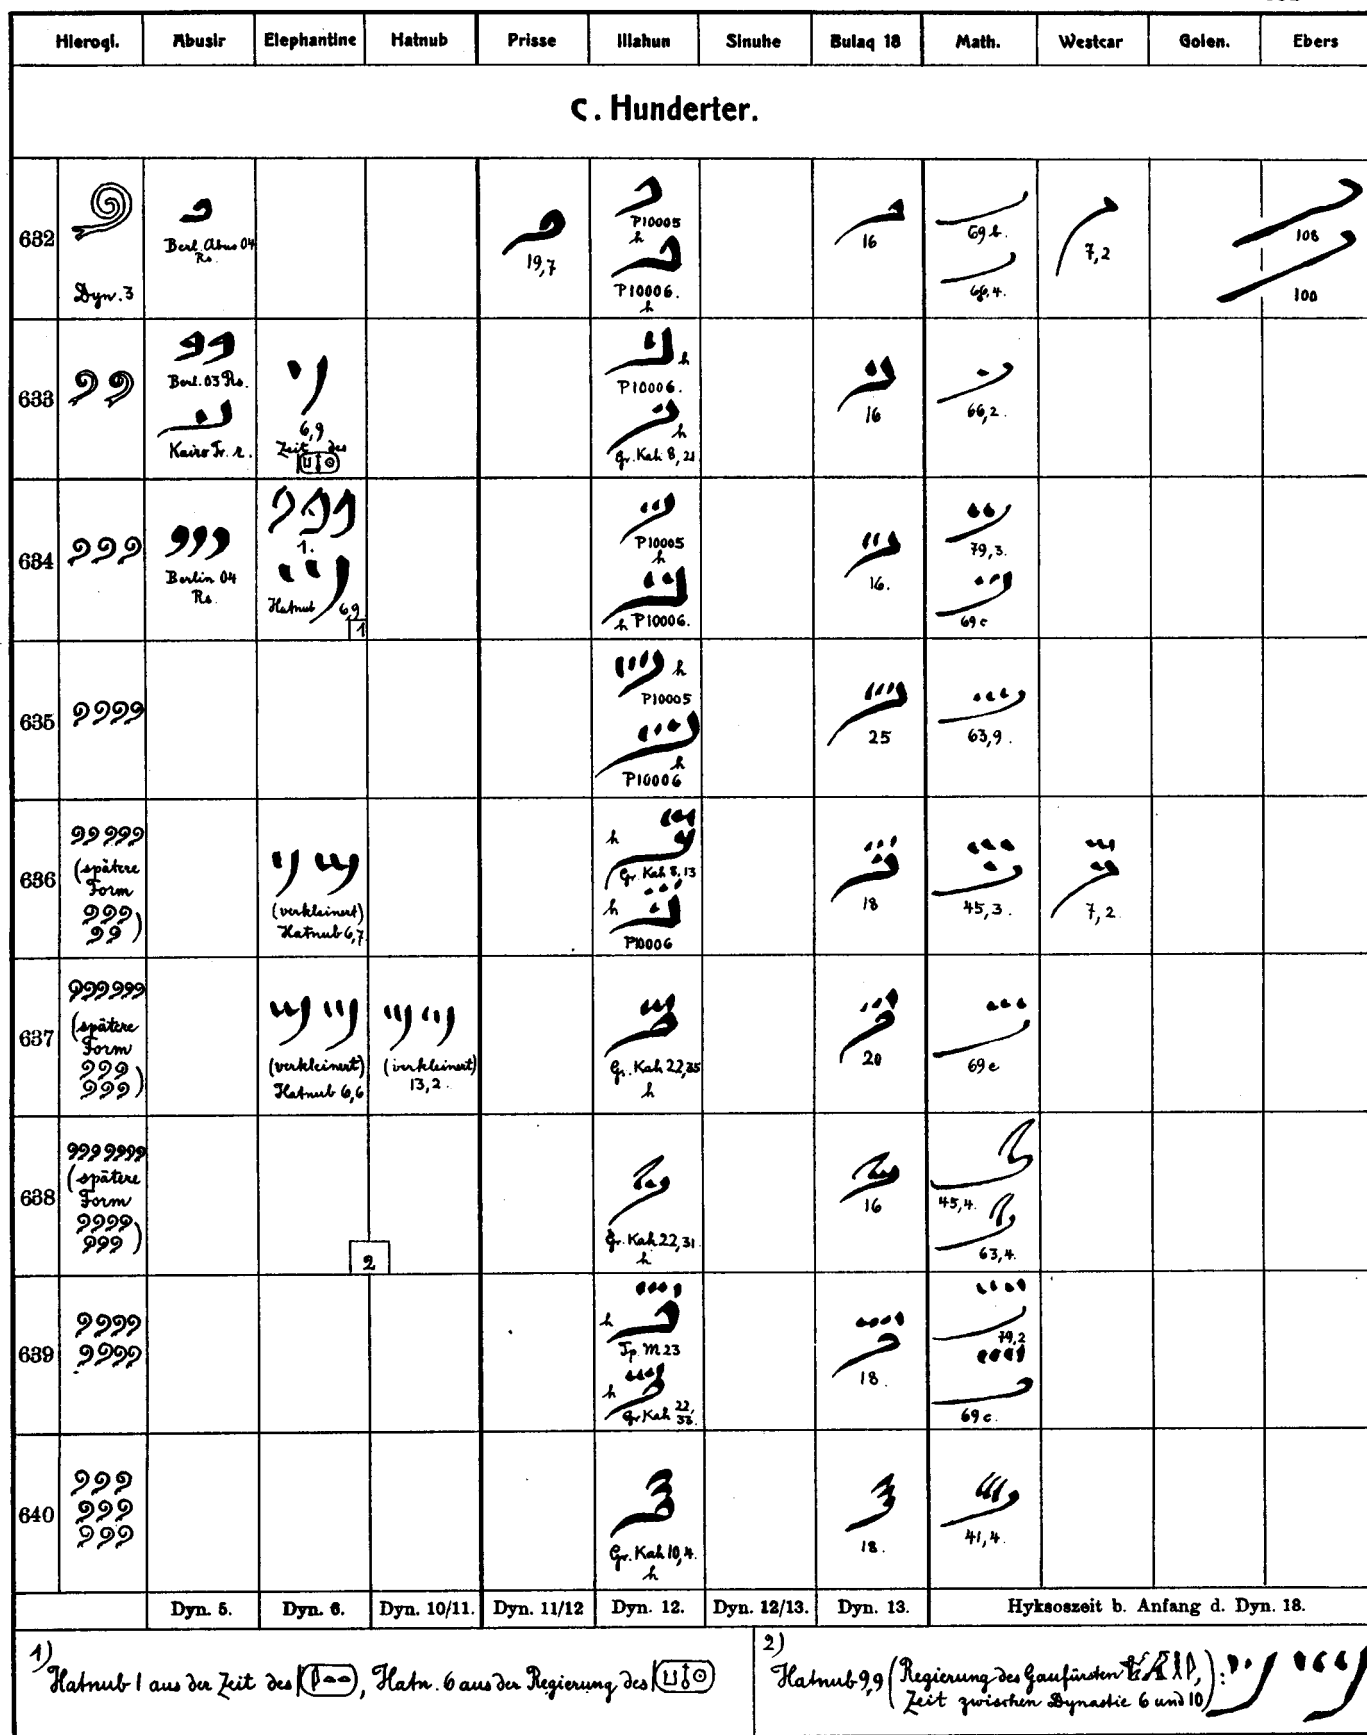 Hierogl. Abusir Elephantine Hatnub Prisse Illahun Sinuhe Bulaq 18 Math. Westcar Golen. Ebers
C. Hunderter.
632
Dyn. 3
Berl. Abus 04
Rs.
19,7
P10005
h
P10006.
h
16
69 b.
66,4.
7,2
108
100
633
Berl. 03 Rs.
Kairo Fr. r.
6,9
Zeit des
h
P10006.
h
Gr. Kah 8, 21
16
66,2.
684
Berlin 04
Rs.
1.
Hatnub 6,9
1
P10005
h
h P10006.
16.
79,3.
69 c
635
h
P10005
h
P10006
25
63,9.
636
(spätere
Form
)
(verkleinert)
Hatnub 6,7
h
Gr. Kah 8,13
h
P10006
18
45,3.
7,2.
637
(spätere
Form
)
(verkleinert)
Hatnub 6,6
(verkleinert)
13,2.
Gr. Kah 22,35
h
20
69 e
638
(spätere
Form
)
2
Gr. Kah 22,31.
h
16
45,4.
63,4.
639
h
Tp. M. 23
h
Gr Kah 22,
33.
18.
79,2
69 c.
640
Gr. Kah 10,4.
h
18.
41,4.
Dyn. 5. Dyn. 6. Dyn. 10/11. Dyn. 11/12 Dyn. 12. Dyn. 12/13. Dyn. 13. Hyksoszeit b. Anfang d. Dyn. 18.
1)
Hatnub 1 aus der Zeit des , Hatn. 6 aus der Regierung des
2)
Hatnub 9,9 (Regierung des Gaufürsten ,
Zeit zwischen Dynastie 6 und 10):